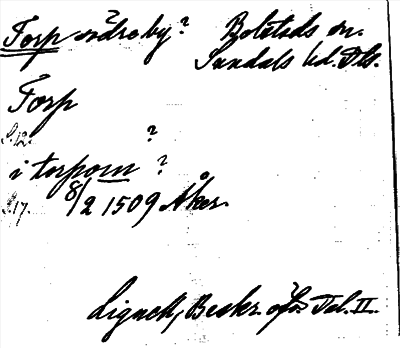 Torp södreby? Bolstads sn.
Sundals hd. Dls.
Torp
S.12. ?
i torpom ?
S.17. 8/2 1509 Åker
Lignell, Beskr. öfv. Dal. II.